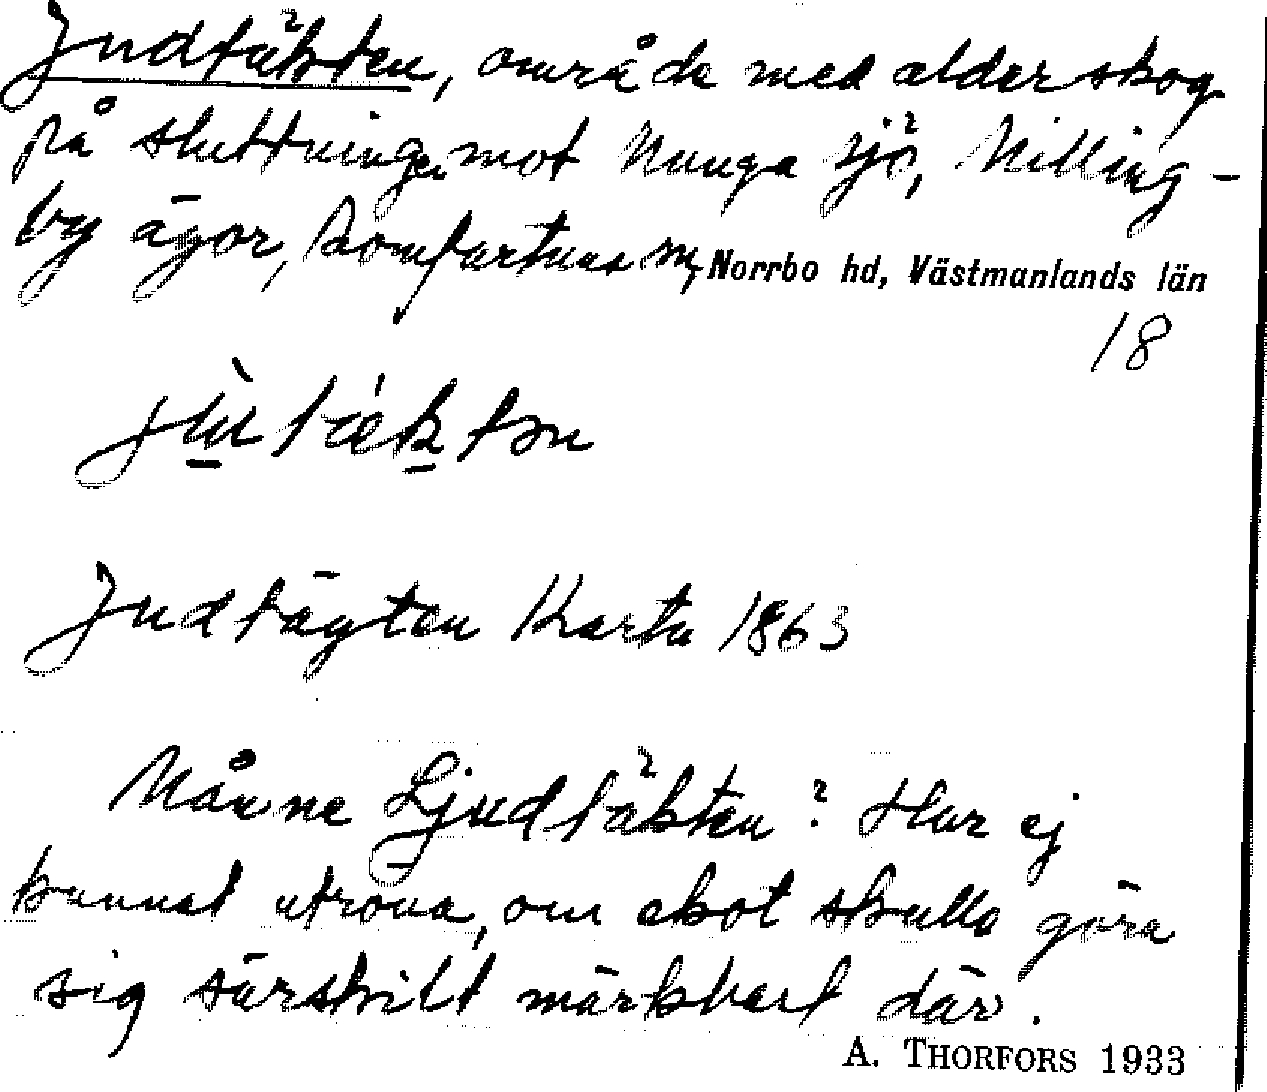 Judtäkten, område med äldre skog
på sluttningen mot Nunga sjö, Nilling-
by ägor, Romfartuna sn, Norrbo hd, Västmanlands län
18
Judtägten Karta 1863
Månne Ljudtäkten? Har ej
kunnat utröna, om ekot skulle göra
sig särskilt märkbart där.
A. THORFORS 1933